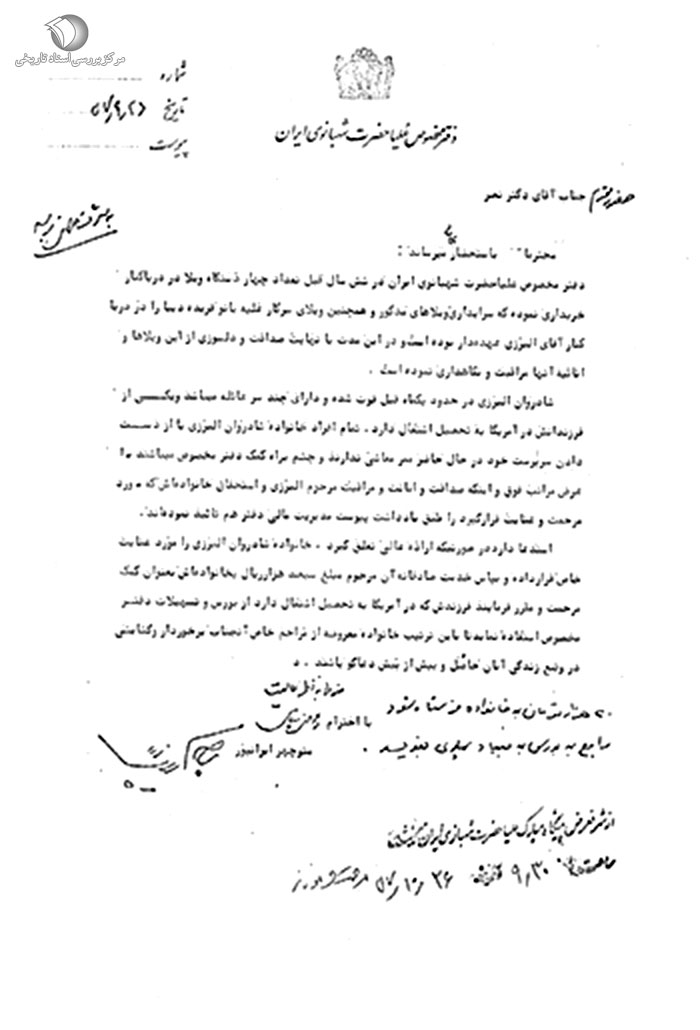 مرکز بررسی اسناد تاریخی
شماره
تاریخ ۵۷/۹/۲۶
پیوست
دفتر مخصوص علیاحضرت شهبانوی ایران
جناب آقای دکتر نصر
محترما" باستحضار میرساند :
دفتر مخصوص علیاحضرت شهبانوی ایران در شش سال قبل تعداد چهار دستگاه ویلا در دریاکنار
خریداری نموده که سرایداری ویلاهای مذکور و همچنین ویلای سرکار علیه بانو فریده دیبا را در دریا
کنار آقای البرزی عهده‌دار بوده است و در این مدت با نهایت صداقت و دلسوزی از این ویلاها و
اثاثیه آنها مراقبت و نگاهداری نموده است .
شادروان البرزی در حدود یکماه قبل فوت شده و دارای چند سر عائله میباشد و یکی از
فرزندانش در آمریکا به تحصیل اشتغال دارد . تمام افراد خانواده شادروان البرزی با از دست
دادن سرپرست خود در حال حاضر ممر معاشی ندارند و چشم براه کمک دفتر مخصوص میباشند
عرض مراتب فوق و اینکه صداقت و امانت و مراقبت مرحوم البرزی و استحقاق خانواده‌اش که مورد
مرحمت و عنایت قرار گیرد را طبق یادداشت پیوست مدیریت مالی دفتر هم تائید نموده‌اند .
استدعا دارد در صورتیکه اراده عالی تعلق گیرد . خانواده شادروان البرزی را مورد عنایت
خاص قرار داده و بپاس خدمت صادقانه آن مرحوم مبلغ سیصد هزار ریال بخانواده‌اش بعنوان کمک
مرحمت و مقرر فرمایند فرزندش که در آمریکا به تحصیل اشتغال دارد از بورس و تسهیلات دفتر
مخصوص استفاده نماید تا باین ترتیب خانواده معروضه از تراحم خاص آنجناب برخوردار و گشایشی
در وضع زندگی آنان حاصل و بیش از پیش دعاگو باشند . د
با احترام
منوچهر ایرانپور
۲۰ هزار تومان به خانواده فرستاده شود
راجع به بورس به بنیاد پهلوی بنویسید .
از شرف عرض پیشگاه مبارک علیاحضرت شهبانوی ایران گذشت
ساعت ۹/۳۰ ۵۷/۱۰/۲۶